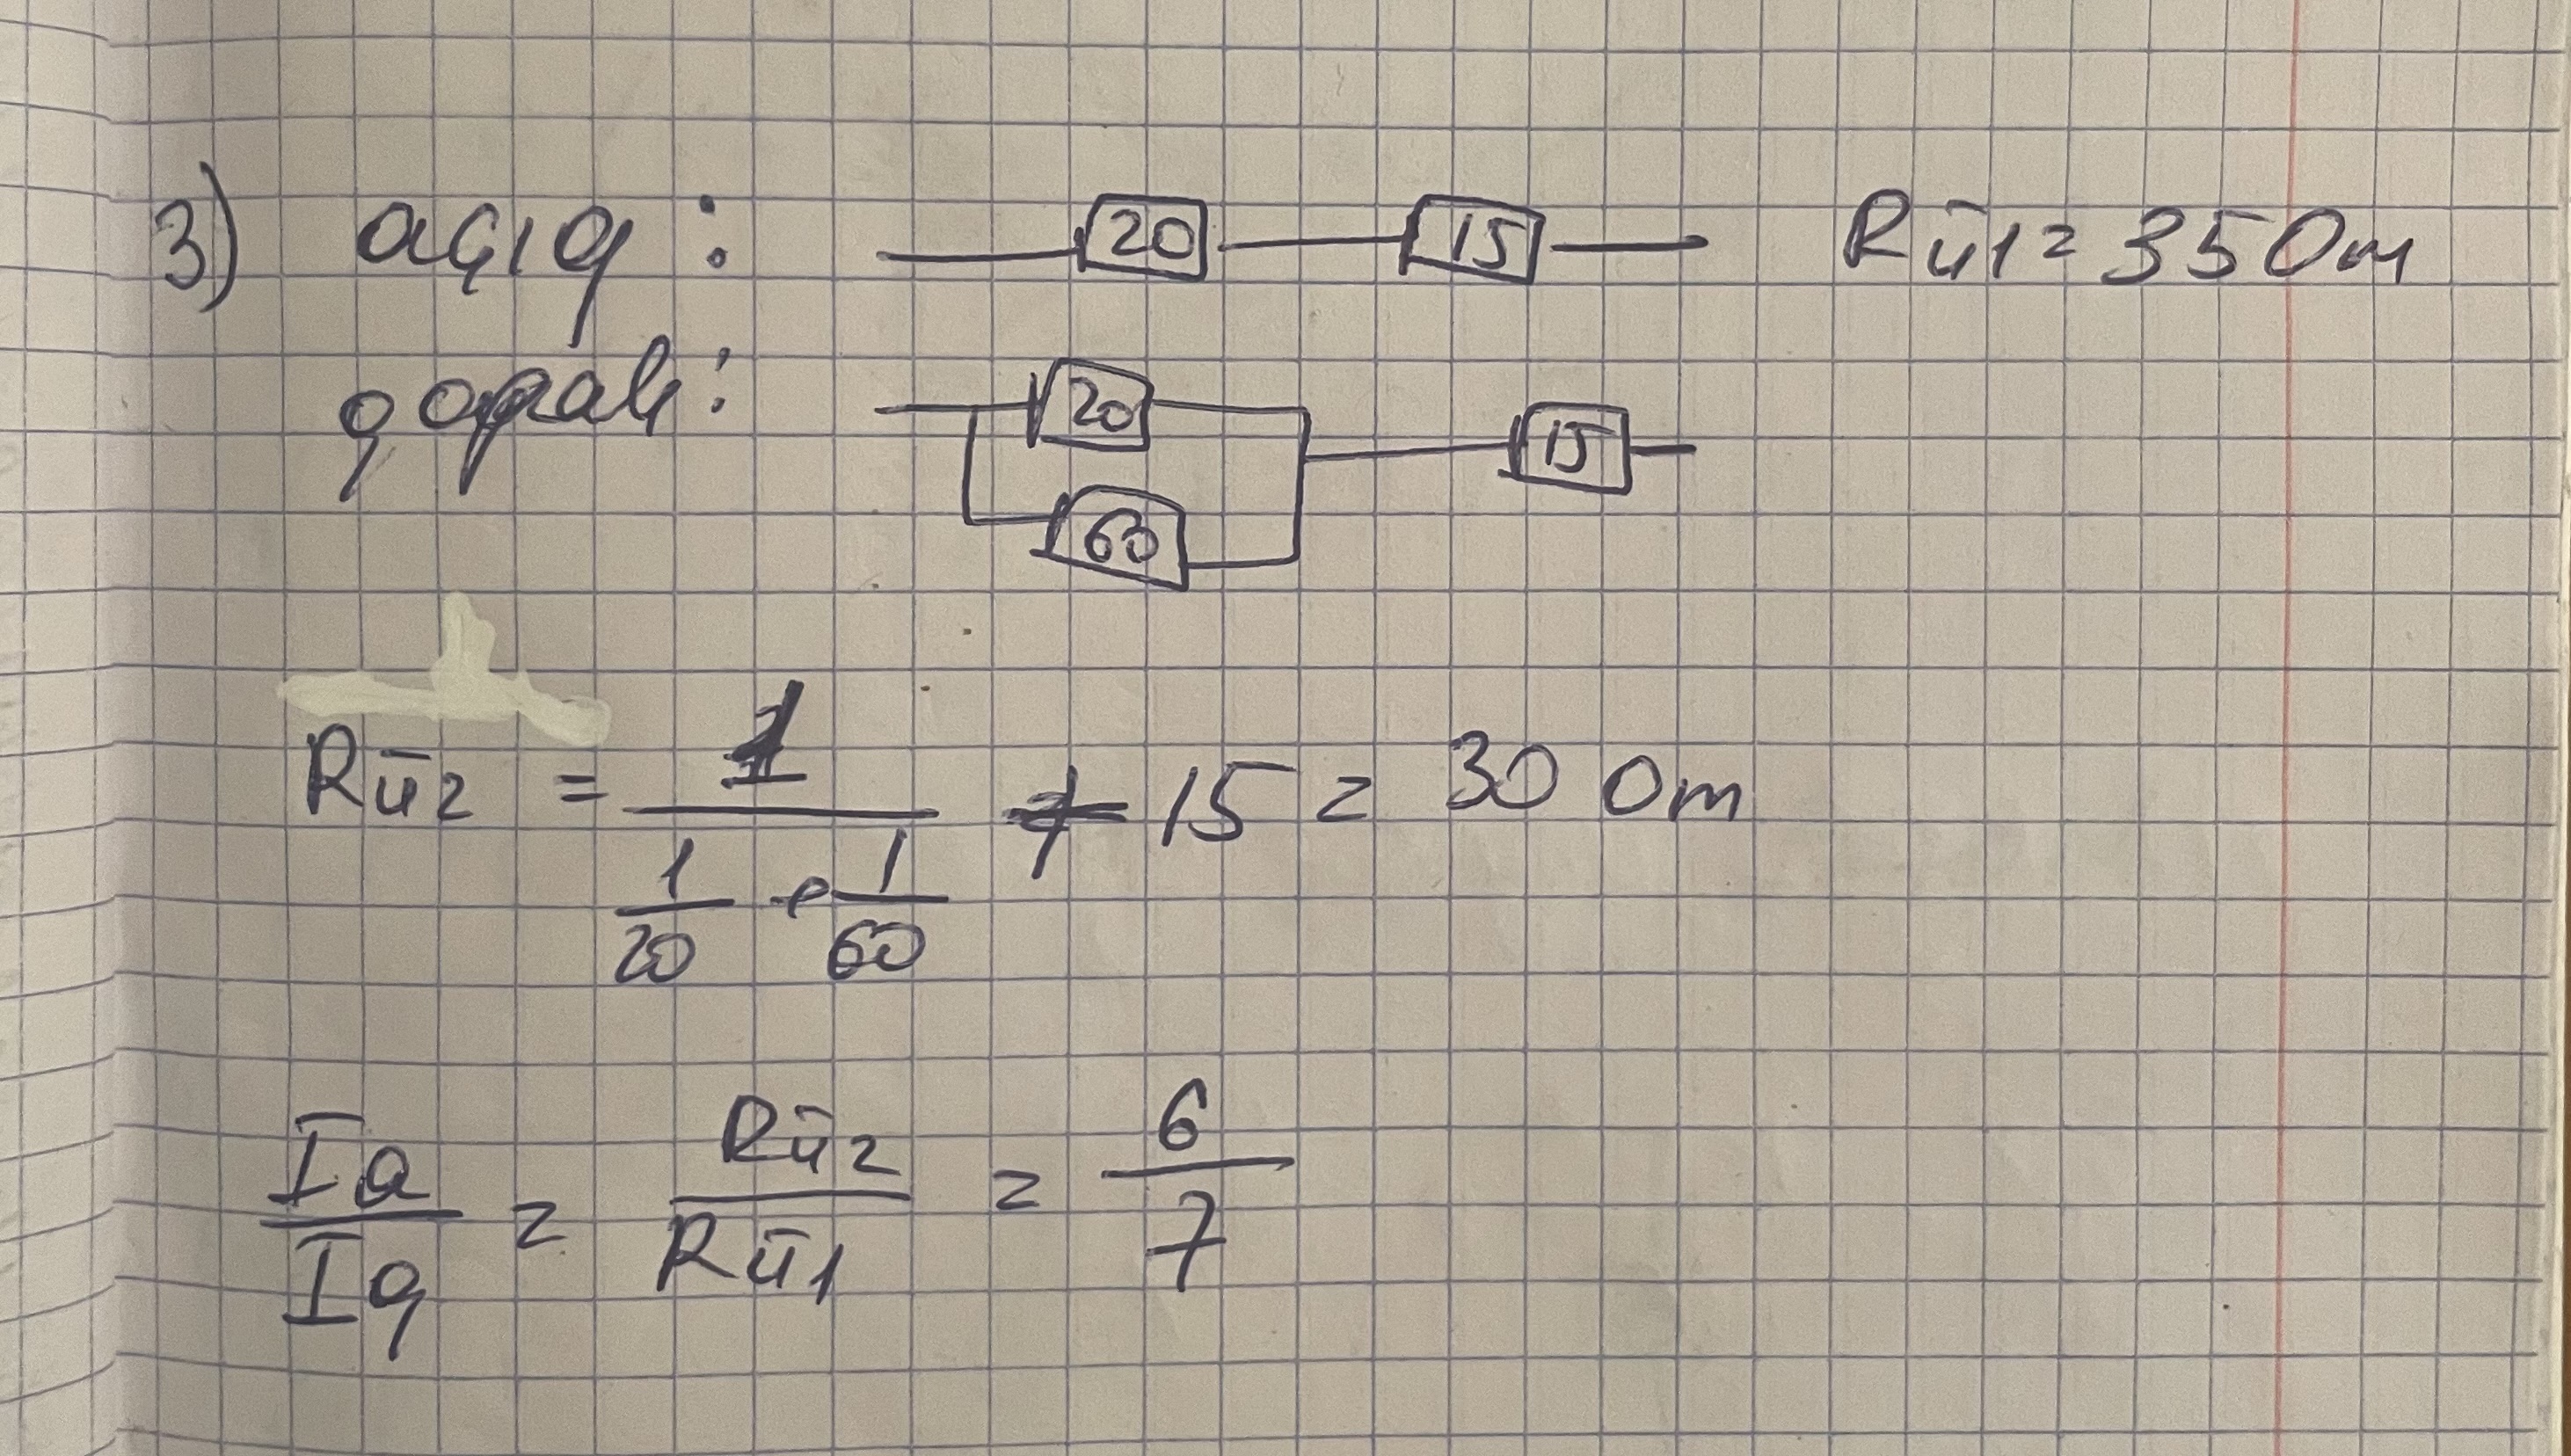 3) açıq : 20 15 Rü1 = 35 Om
qapalı : 20 15
60
Rü2 = 1 / (1/20 + 1/60) + 15 = 30 Om
Ia/Iq = Rü2/Rü1 = 6/7